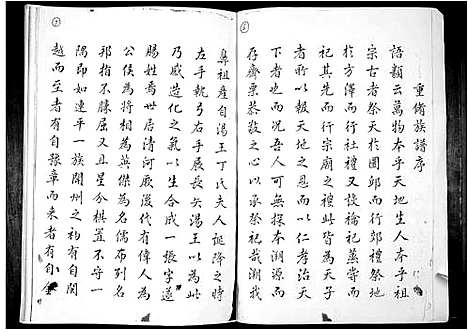 重脩族譜序
語類云萬物本乎天地生人本乎祖
宗古者祭天於圜邱而行郊禮祭地
於方澤而行社禮又設禘祫蒸嘗而
祀其先而行宗廟之禮此皆為天子
者所以報天地之恩而以仁孝治天
下者也而況吾人可無探本溯源而
存齊栗恭敬之心以承祭祀哉溯我
鼻祖產自湯王丁氏夫人誕降之時
左手執弓右手展長矢湯王以為天
乃感造化之氣以生合成一張字遂
賜姓焉世居清河厥後代有偉人為
公侯為將相為英傑為名儒布列名
邦指不勝屈又且星分棋置不守一
隅即如連平一族開州之初有自閩
越而至者有自豫章而來者有自金